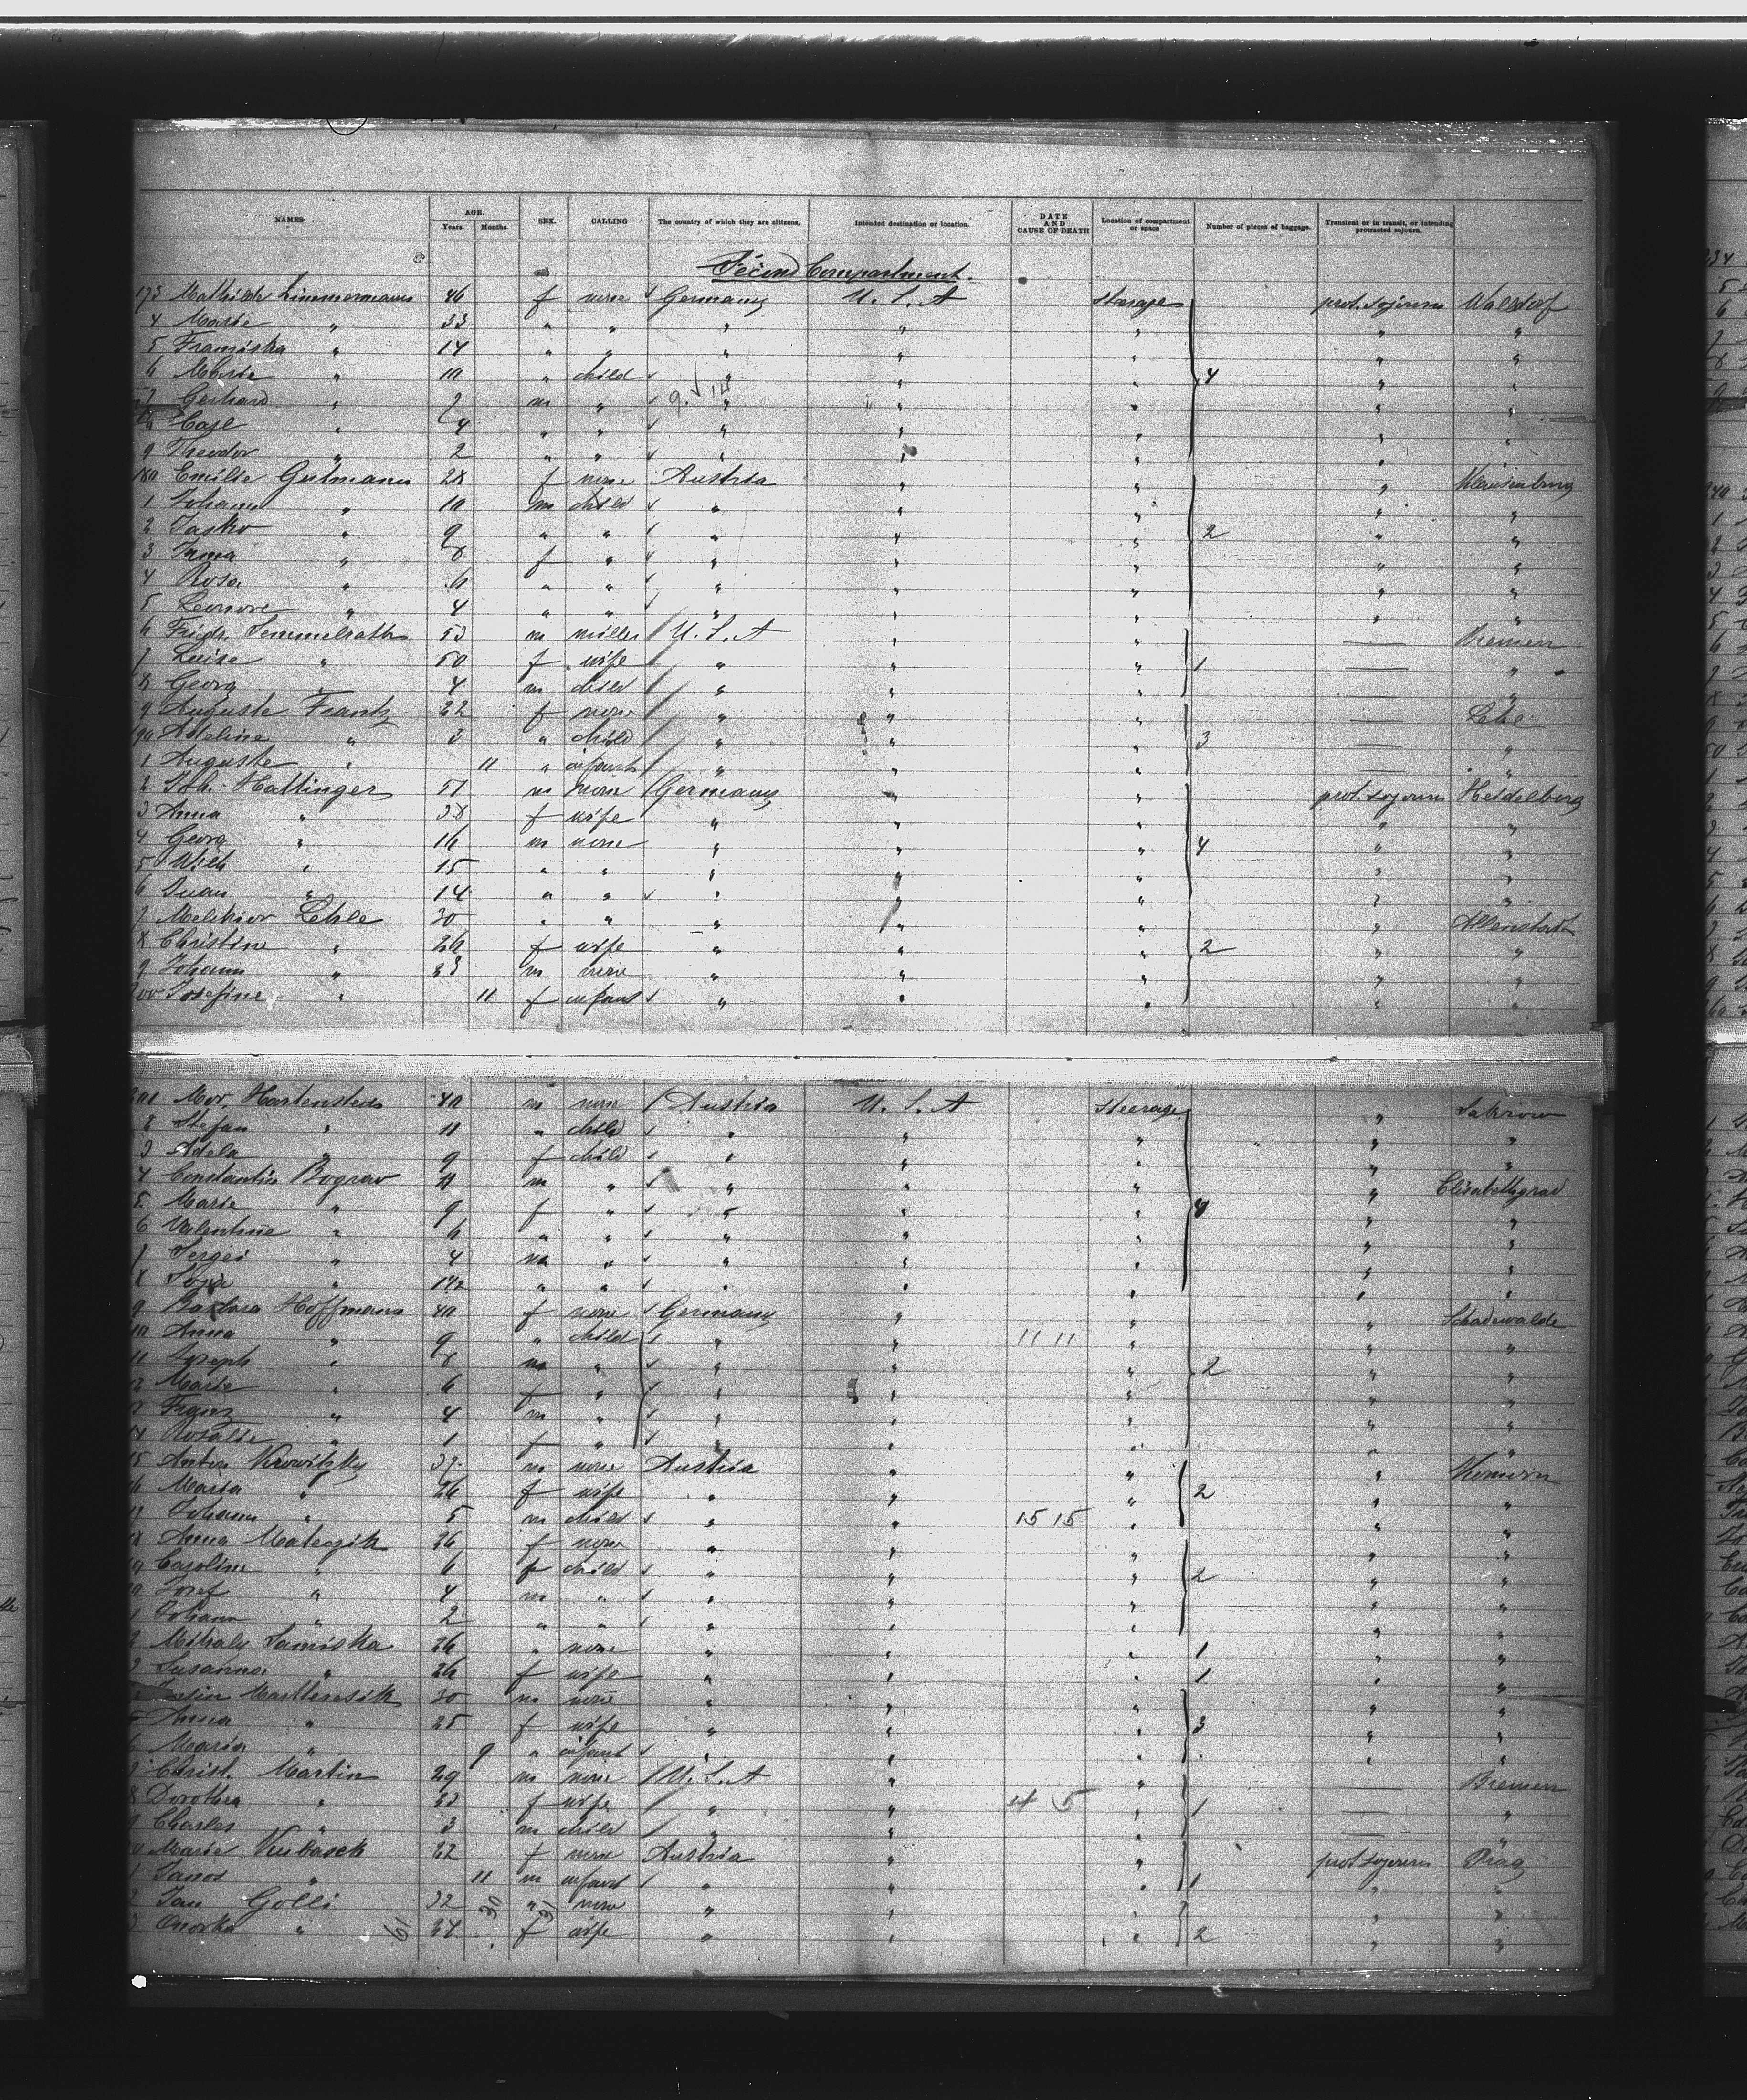 NAMES AGE. Years. Months. SEX. CALLING The country of which they are citizens. Intended destination or location. DATE AND CAUSE OF DEATH Location of compartment or space Number of pieces of baggage. Transient or in transit, or intending protracted sojourn.
Second Compartment.
173 Mathilde Zimmermann 46 f none Germany U.S.A steerage prot. sojourn Walldorf
4 Marie " 33 " " " " " " "
5 Franziska " 14 " " " " " " "
6 Marie " 10 " child " " " 4 " "
7 Gerhard " m " " " " " "
8 Carl " 4 " " " " " " "
9 Theodor " 2 " " " " " "
180 Emilie Gutmann 28 f none Austria " " "
1 Johann " 10 m child " " " " "
2 " 9 " " " " " 2 " "
3 " 8 f " " " " " "
4 Rosa " 6 " " " " " " "
5 Leonore " 4 " " " " " " "
6 Friedr. Semmelrath 53 m miller U.S.A " " — Bremen
7 Luise " 50 f wife " " " 1 — "
8 Georg " 4 m child " " " — "
9 Auguste Frantz 22 f none " " " — Lehe
190 Adeline " 3 " child " " " 3 — "
1 Auguste " 11 " infant " " " — "
2 Joh. Hattinger 51 m none Germany " " prot. sojourn Heidelberg
3 Anna " 38 f wife " " " " "
4 Georg " 16 m none " " " 4 " "
5 Wilh " 15 " " " " " " "
6 " 14 " " " " " " "
7 Melchior Lehle 30 " " " " " "
8 Christine " 26 f wife " " " 2 " "
9 Johann " 23 m none " " " " "
200 Josefine " 11 f infant " " " " "
201 40 m none Austria U.S.A Steerage "
2 Stefan " 11 " child " " " " "
3 Adela " 9 f child " " " " "
4 Constantin Bograv 11 m " " " " " Elisabethgrad
5 Marie " 9 f " " " " 4 " "
6 Valentine " 6 " " " " " " "
7 Sergei " 4 m " " " " " "
8 " " " " " " "
9 Barbara Hoffmann 40 f none Germany " " " Schadewalde
10 Anna " 9 " child " " 11 11 " " "
11 Joseph " 8 m " " " " 2 " "
12 Marie " 6 f " " " " " "
Franz " 4 m " " " " " "
14 Rosalie " 1 f " " " " " "
15 Anton 32 m none Austria " " "
6 Maria " 26 f wife " " " 2 " "
Johann " 5 m child " " 15 15 " " "
18 Anna 26 f none " " " " "
19 Caroline " 6 f child " " " 2 " "
Josef " 4 m " " " " " "
1 Johann " 2 " " " " " " "
2 Mihaly 26 " none " " " 1 " "
3 Susanna " 26 f wife " " " 1 " "
30 m none " " " " "
Anna " 25 f wife " " " 3 " "
6 Maria " 9 " infant " " " " "
Christ. Martin 29 m none U.S.A " " — Bremen
8 Dorothea " 32 f wife " " 4 5 " 1 — "
9 Charles " 3 m child " " " — "
Marie Kubasek 22 f none Austria " " prot sojourn Prag
1 Janos " 11 m infant " " " 1 " "
2 Jan Golli 32 " none " " " " "
3 " 24 f wife " " " 2 " "
61 30 31